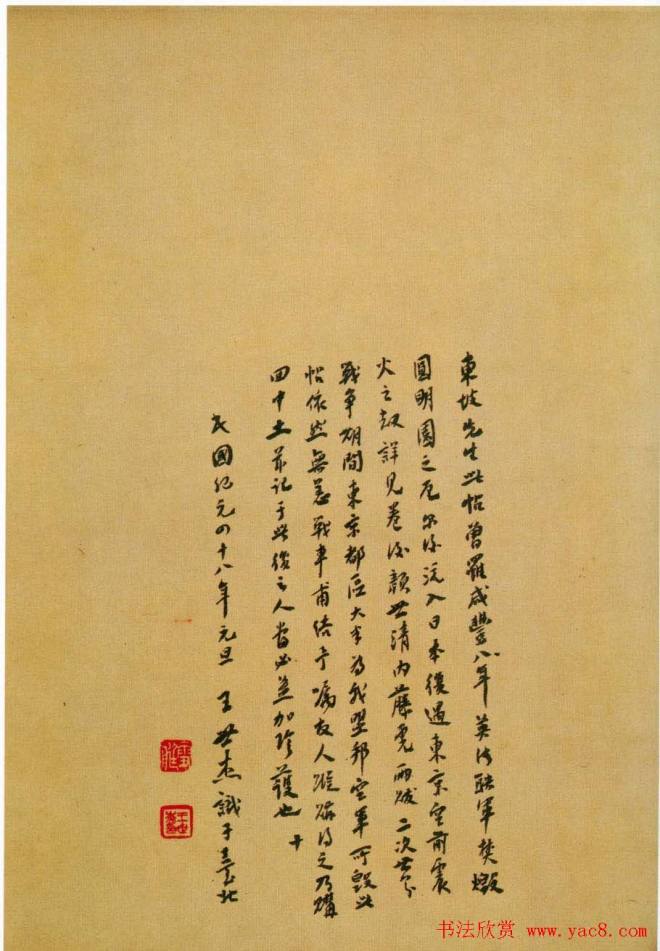 東坡先生此帖曾罹咸豐八年英法聯軍焚燬
圓明園之厄爾後流入日本復遇東京空前震
火之劫詳見卷後顏世清內藤虎兩跋二次世界
戰爭期間東京都區大半為我盟邦空軍所毀此
帖依然無恙戰事甫結予囑友人蹤跡得之乃購
回中土並記于此後之人當必益加珍護也 十
民國紀元四十八年元旦 王世杰識于臺北
雪艇
书法欣赏 www.yac8.com